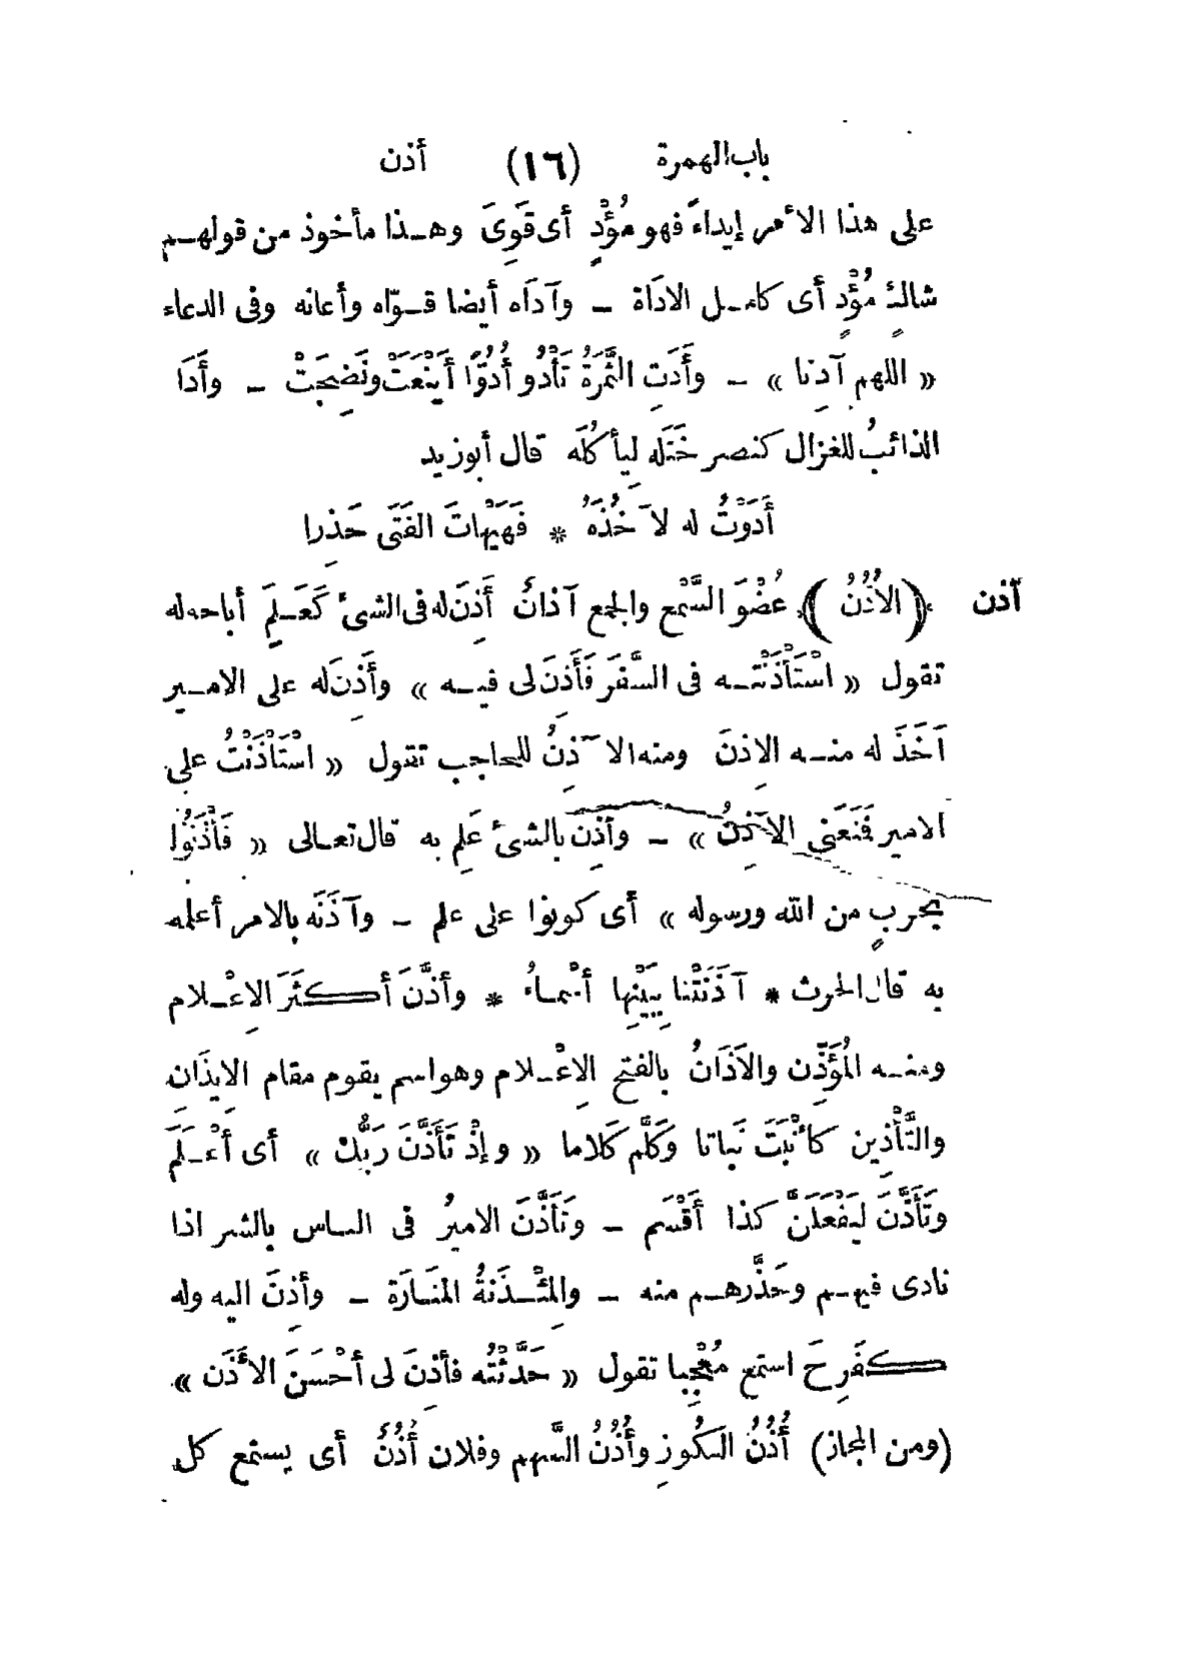 باب الهمزة (١٦) أذن
على هذا الأمر إيداءً فهو مُؤْدٍ أى قَوِىَ وهـذا مأخوذ من قولهـم
شالـٍ مُؤْدٍ أى كامـل الاداة ــ وآداه أيضا قـوّاه وأعانه وفى الدعاء
« اللهم آدِنا » ــ وأَدَتِ الثَّمَرَةُ تَأْدُو أُدُوًّا أَيْنَعَتْ ونَضِجَتْ ــ وأَدَا
الذائبُ للغزال كنصر خَتَلَه ليأكُلَه قال أبو زيد
أَدَوْتُ له لآَخُذَهُ * فَهَيْهاتَ الفَتَى حَذِرا
أذن ﴿الأُذُنُ﴾ عُضْوَ السَّمْع والجمع آذانٌ أَذِنَ له فى الشئ كَعَـلِمَ أباحه له
تقول « اسْتَأْذَنْتُـه فى السَّفَر فَأَذِنَ لى فيـه » وأَذِنَ له على الامـير
أَخَذَ له منـه الإذنَ ومنه الآذِنُ للحاجب تقول « اسْتَأذَنْتُ على
الامير فَمَنَعَنى الآذِنُ » ــ وأذِنَ بالشئ عَلِم به قال تعـالى « فَأْذَنُوا
بحربٍ من الله ورسوله » أى كونوا على علم ــ وآذَنَه بالامر أعلمه
به قال الحرث * آذَنَتْنا بِبَيْنِها أسْماءُ * وأذَّنَ أكثَرَ الإعْـلام
ومنـه المُؤَذِّن والأَذَانُ بالفتح الإعْـلام وهو اسم يقوم مقام الايذَانِ
والتَّأْذِين كأنْبَتَ نَباتا وكَلَّم كَلاما « وإذْ تَأَذَّنَ رَبُّكَ » أى أَعْـلَمَ
وتَأَذَّنَ لَيَفْعَلَنَّ كذا أَقْسَم ــ وتَأَذَّنَ الاميرُ فى الناس بالشر اذا
نادى فيهـم وحَذَّرهـم منه ــ والمِئْـذَنةُ المَنَـارَة ــ وأذِنَ اليه وله
كَفَرِحَ استمع مُعْجِبا تقول « حَدَّثْتُه فأذِنَ لى أحْسَنَ الأَذَن »
(ومن المجاز) أُذُنُ الكُوزِ وأُذُنُ السَّهم وفلان أُذُنٌ أى يستمع كل